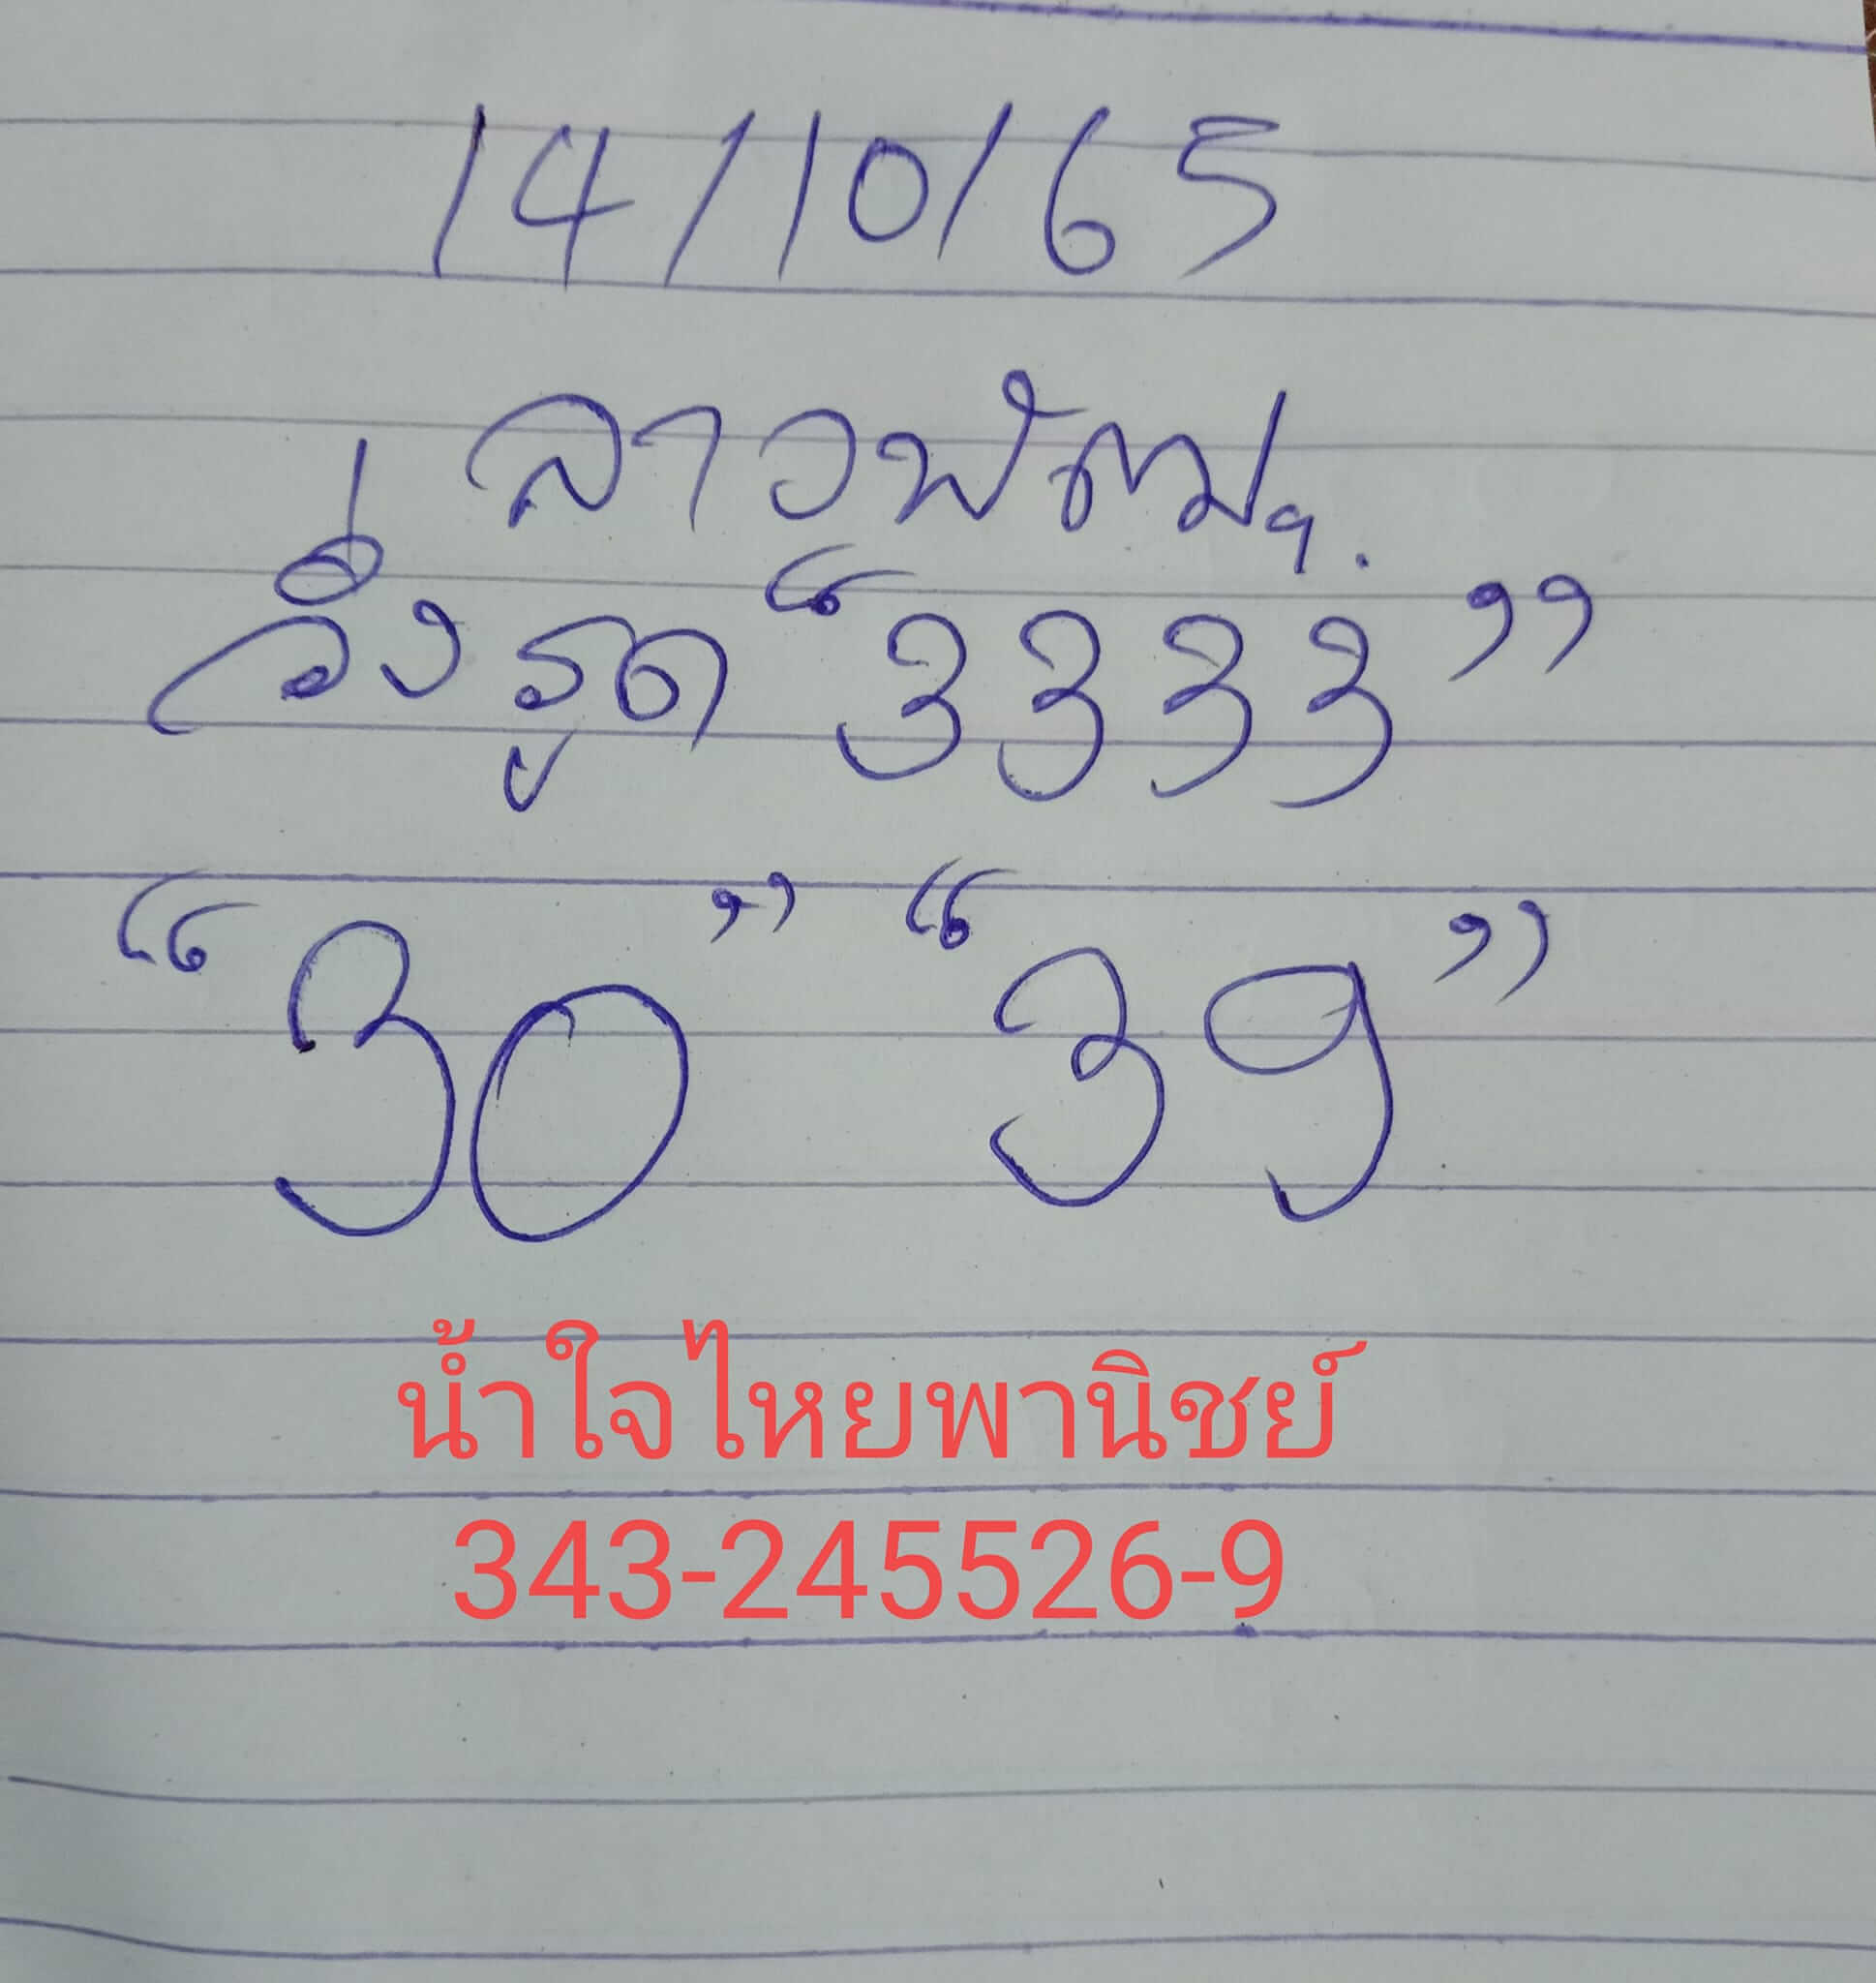 14/10/65
ลาวพัฒนา.
วิ่งรูด “3333”
“30” “39”
น้ำใจไหยพานิชย์
343-245526-9